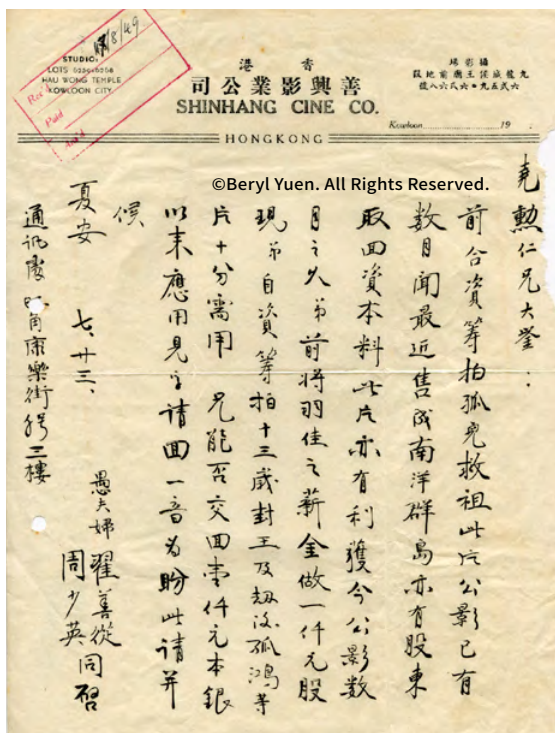 STUDIO:
LOTS 6259-6268
HAU WONG TEMPLE
KOWLOON CITY.
/8/49
Rec'd
Paid
Ans'd
香港
善興影業公司
SHINHANG CINE CO.
HONGKONG
攝影場
九龍城侯王廟前地段
六弍五九・六弍六八號
Kowloon 19
©Beryl Yuen. All Rights Reserved.
堯勲仁兄大鑒：
前合資籌拍孤兒救祖此片公影已有
數月聞最近售戍南洋群島亦有股東
取回資本料此片亦有利獲今公影數
月之久弟前将羽佳之薪金做一仟元股
現弟自資籌拍十三歲封王及劫後孤鴻等
片十分需用 兄能否交回壹仟元本銀
以来應用見字請回一音為盼此請并
候
夏安 七、廿三、
愚夫婦 翟善從 周少英 同啓
通訊處 角康樂街 號三樓